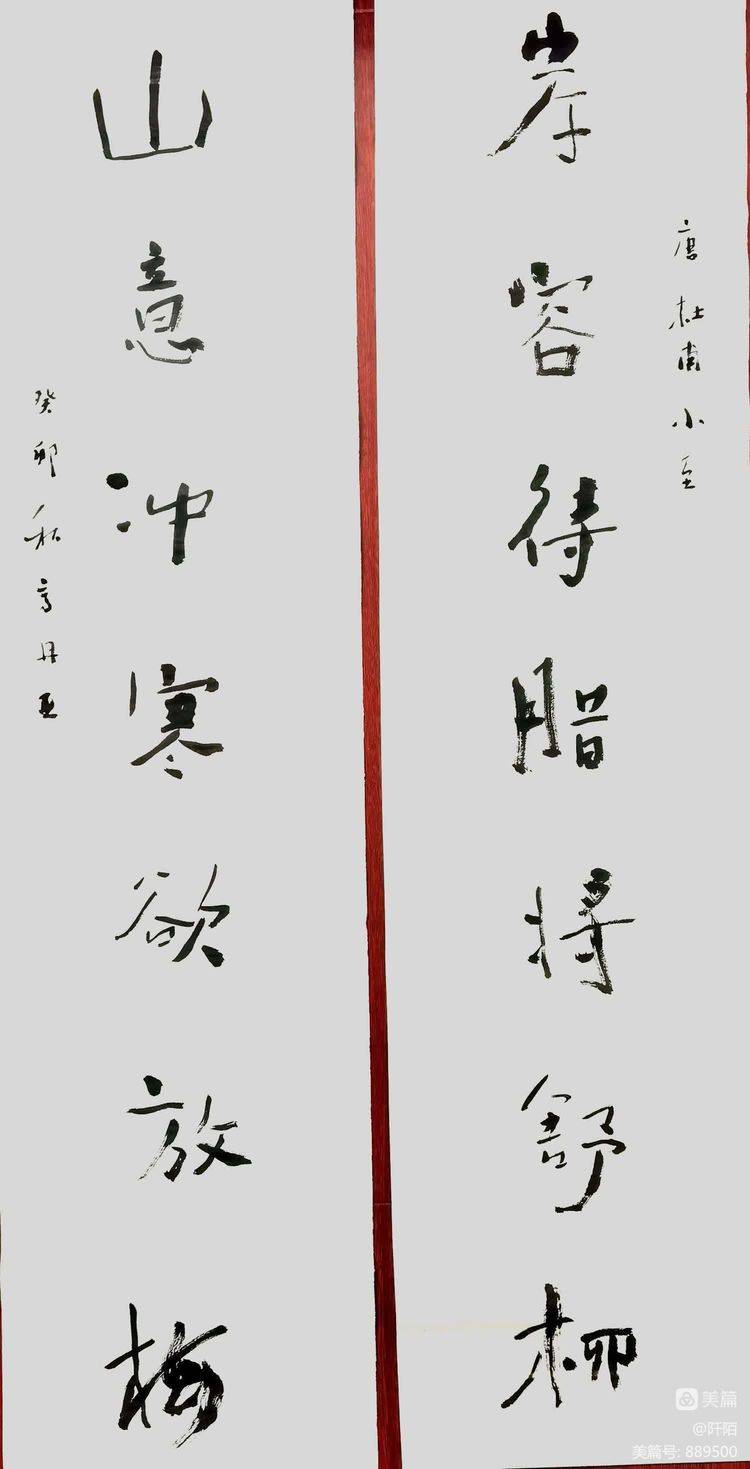 岸容待腊将舒柳
唐杜甫小至
山意冲寒欲放梅
癸卯秋高丹亚
美篇
@阡陌
美篇号: 889500